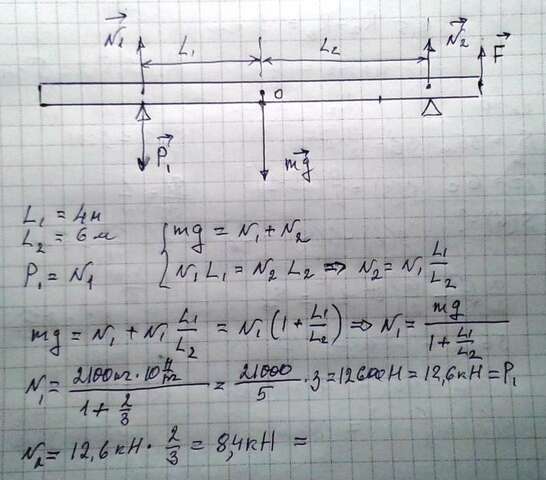 N⃗₁ L₁ L₂ N⃗₂ F⃗
O
P⃗₁ mg⃗
L₁ = 4м
L₂ = 6м
P₁ = N₁
{ mg = N₁ + N₂
N₁ L₁ = N₂ L₂ ⇒ N₂ = N₁ L₁/L₂
mg = N₁ + N₁ L₁/L₂ = N₁(1 + L₁/L₂) ⇒ N₁ = mg/(1 + L₁/L₂)
N₁ = (2100кг · 10 Н/кг)/(1 + 2/3) = 21000/5 · 3 = 12600Н = 12,6кН = P₁
N₂ = 12,6кН · 2/3 = 8,4кН =